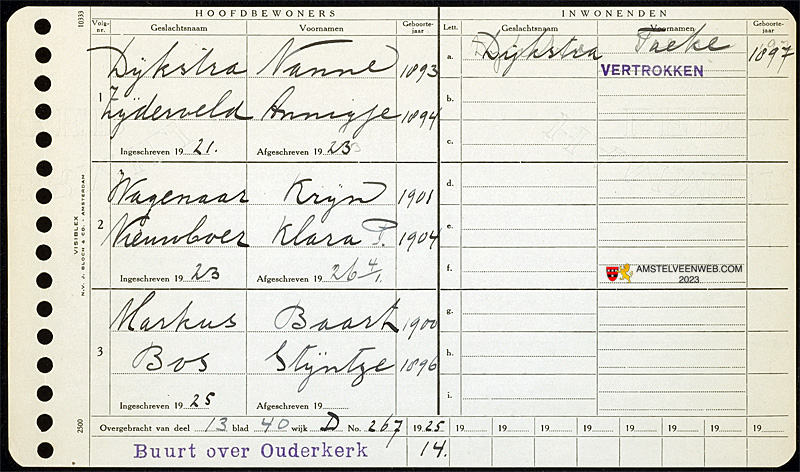 HOOFDBEWONERS
INWONENDEN
Volg-nr.
Geslachtsnaam
Voornamen
Geboorte-jaar
Lett.
Geslachtsnaam
Voornamen
Geboorte-jaar
1
Dijkstra Nanne 1893
Zijderveld Annigje 1894
Ingeschreven 19 21. Afgeschreven 19 23
2
Wagenaar Krijn 1901
Nieuwboer Klara P. 1904
Ingeschreven 19 23 Afgeschreven 19 26 4/1.
3
Markus Baart 1900
Bos Stijntje 1896
Ingeschreven 19 25 Afgeschreven 19
a. Dijkstra Taeke 1897
VERTROKKEN
b.
c.
d.
e.
f.
AMSTELVEENWEB.COM
2023
g.
h.
i.
Overgebracht van deel 13 blad 40 wijk D No. 267 19 25 19 19 19 19 19 19 19 19
Buurt over Ouderkerk 14.
10333
VISIBLEX
N.V. J. BLOCH & CO. - AMSTERDAM
2500